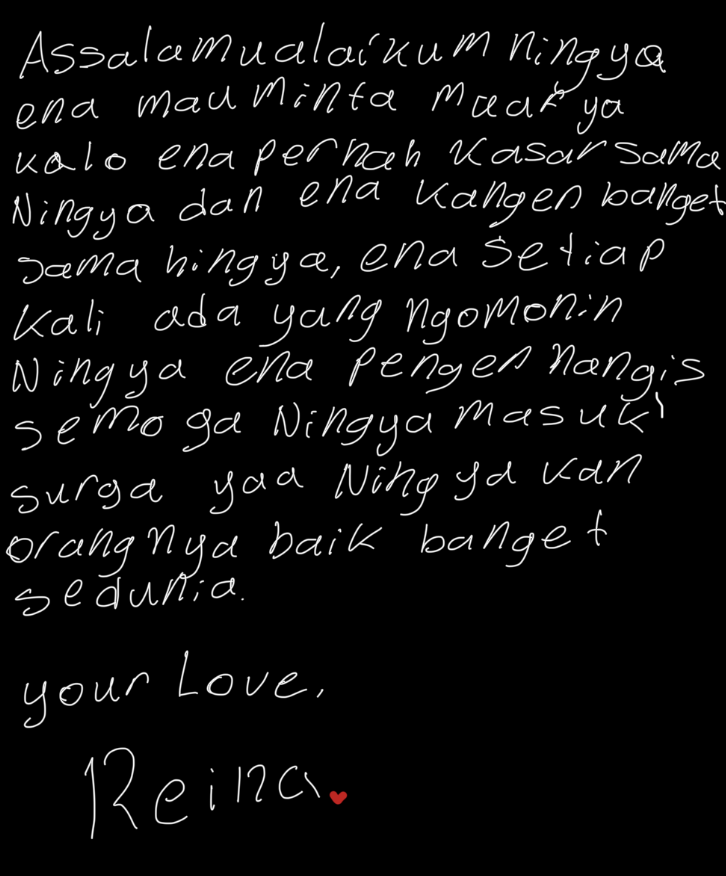 Assalamualaikum ningya
ena mau Minta maaf ya
kalo ena pernah kasar sama
Ningya dan ena kangen banget
sama ningya, ena setiap
kali ada yang ngomonin
Ningya ena pengen nangis
semoga Ningya masuk
surga yaa Ningya kan
orangnya baik banget
sedunia.
your Love,
Reina.